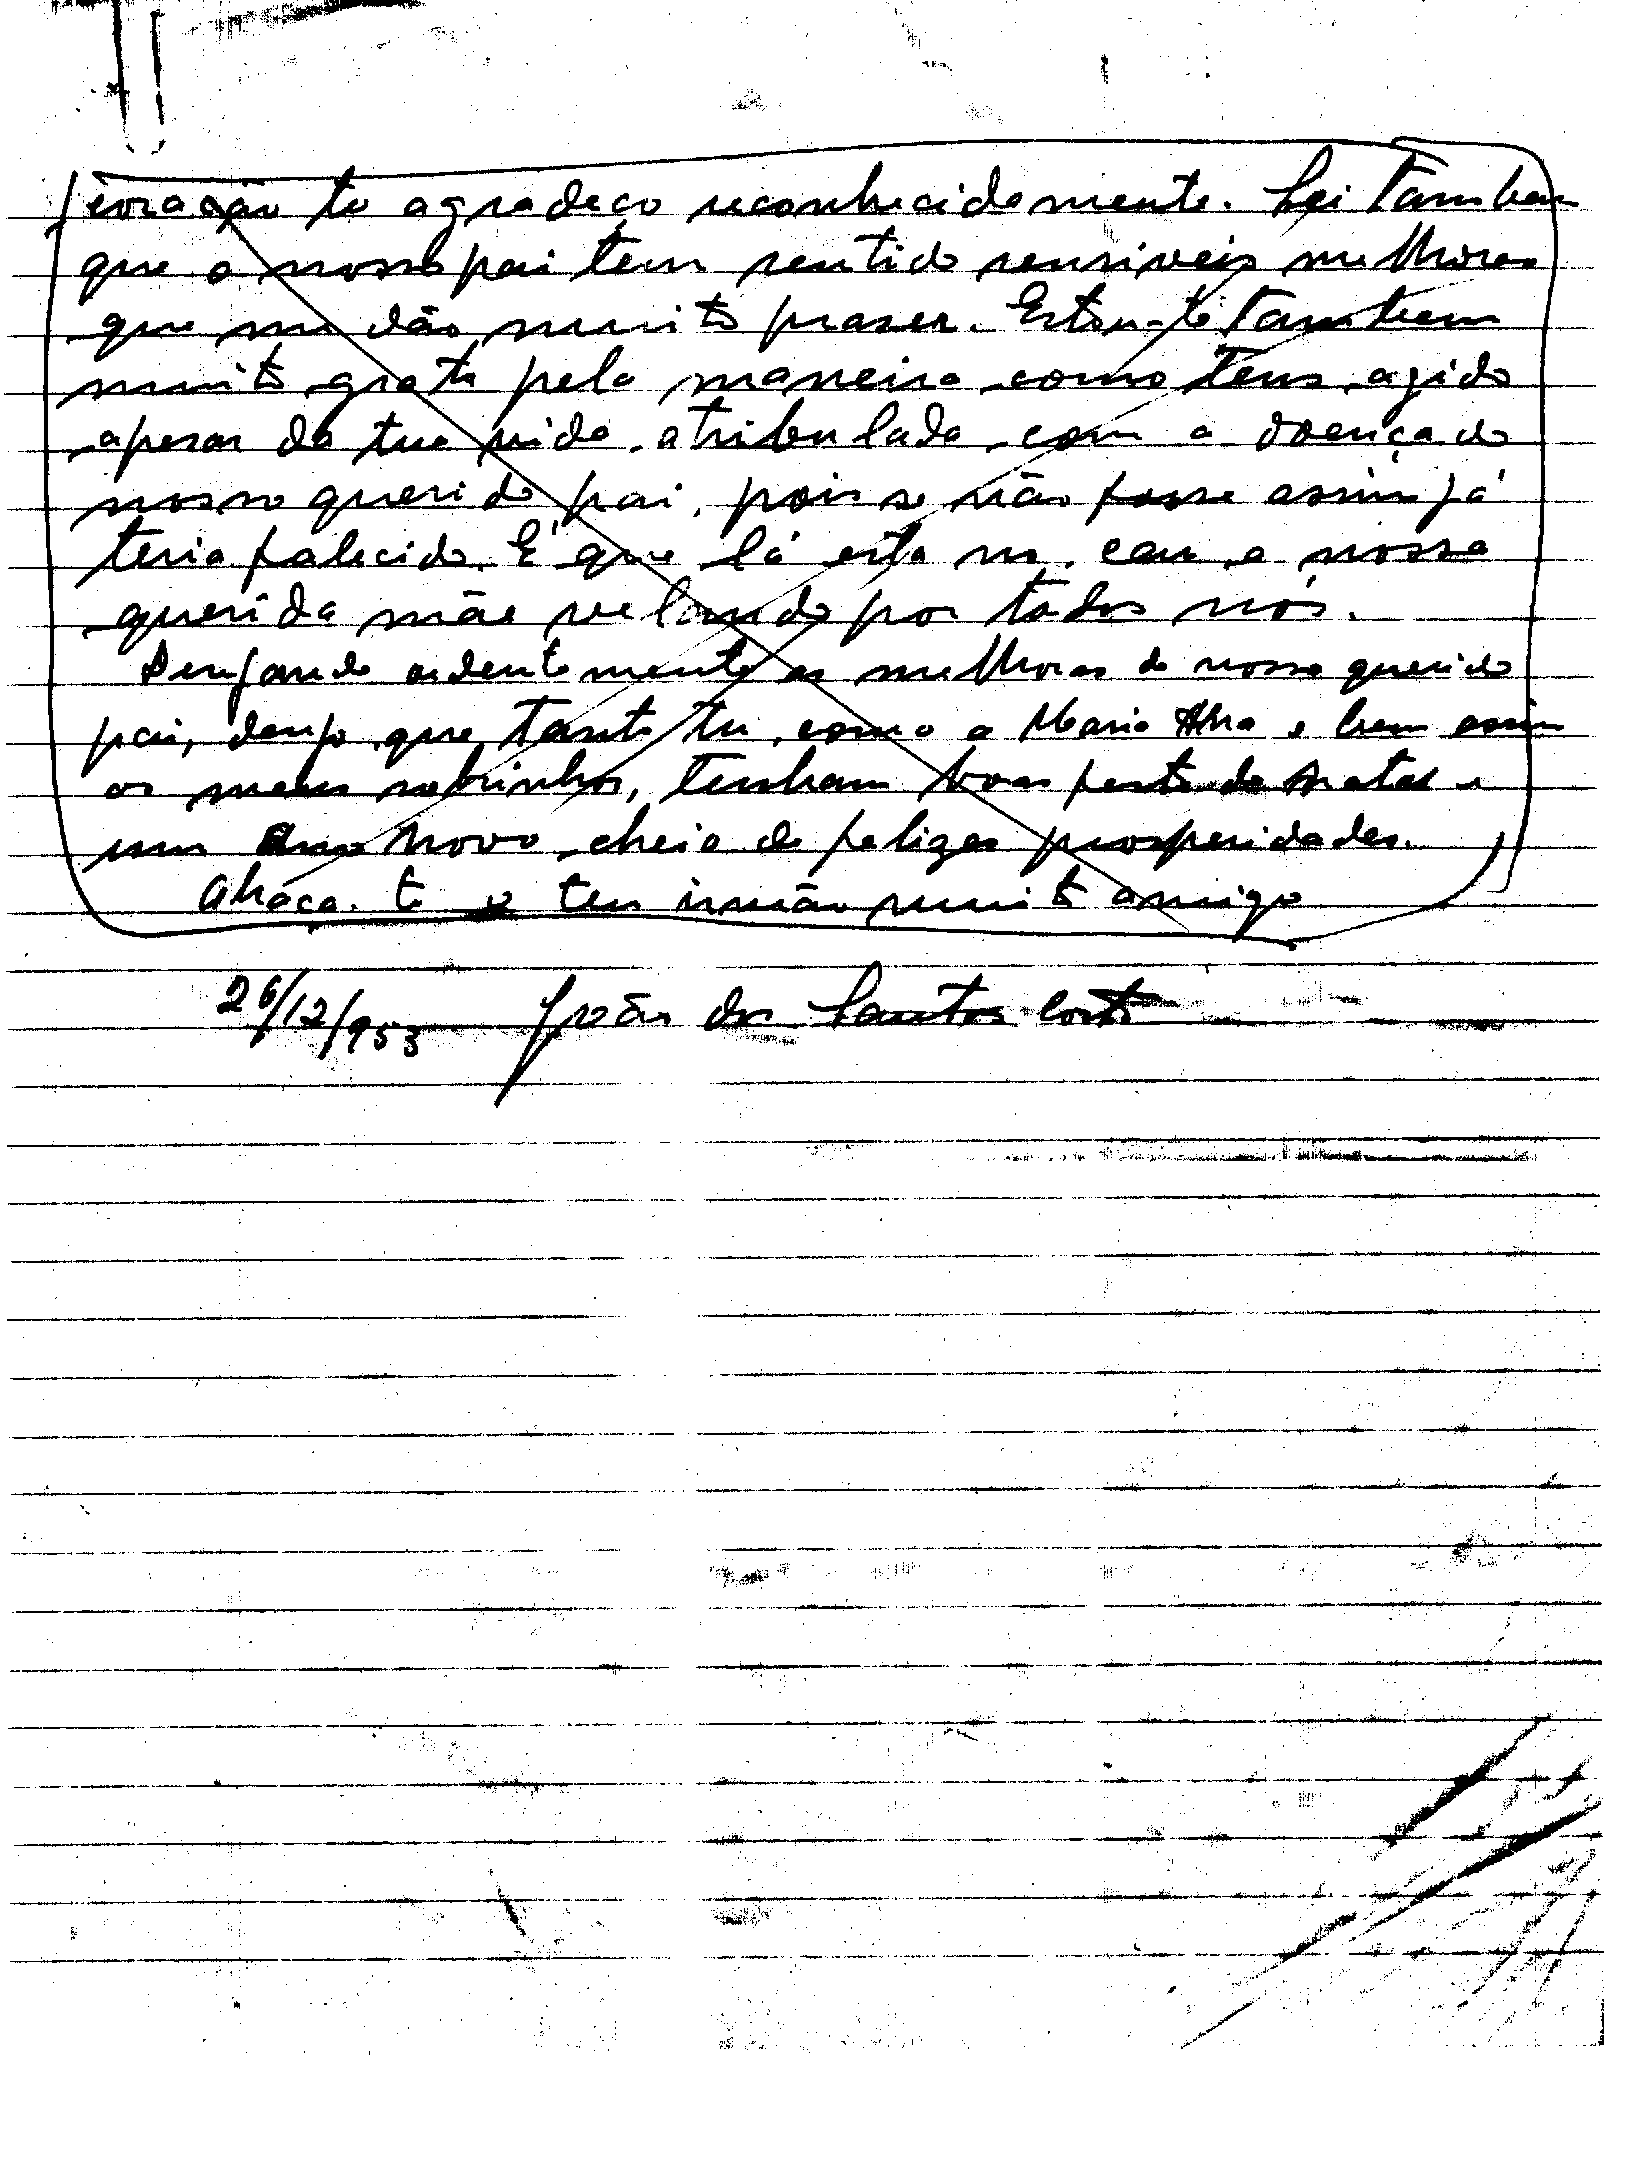 te agradeço reconhecidamente. Sei tambem
que o nosso pai tem sentido sensiveis melhoras
que me dão muito praser. Estou-te tambem
muito grato pela maneira como tens agido
apesar da tua vida atribulada com a doença do
nosso querido pai, pois se não fosse assim já
teria falecido. É que lá está no ceu a nossa
querida mãe velando por todos nós.
Desejando ardentemente as melhoras do nosso querido
pai, desejo que tanto tu, como a Maria e bem assim
os meus sobrinhos, tenham boas festas do Natal e
um Ano Novo cheio de felizes prosperidades.
Abraça-te o teu irmão muito amigo
26/12/953 João dos Santos Costa